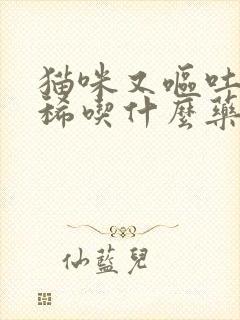 猫咪又嘔吐
稀喫什麼藥
仙藍兒